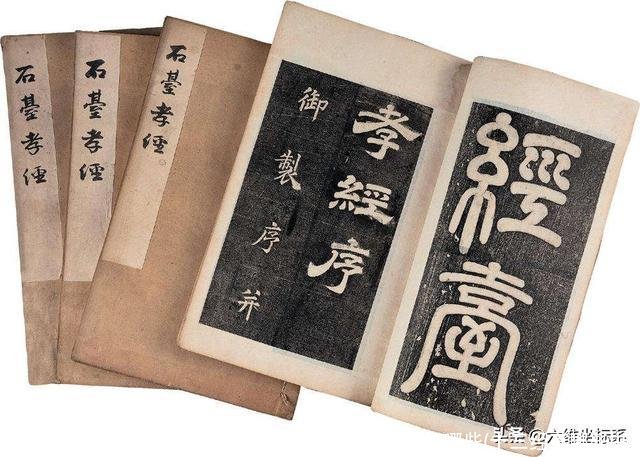 石臺孝經
石臺孝經
石臺孝經
孝經序
御製序并
經臺
头条@六维坐标系